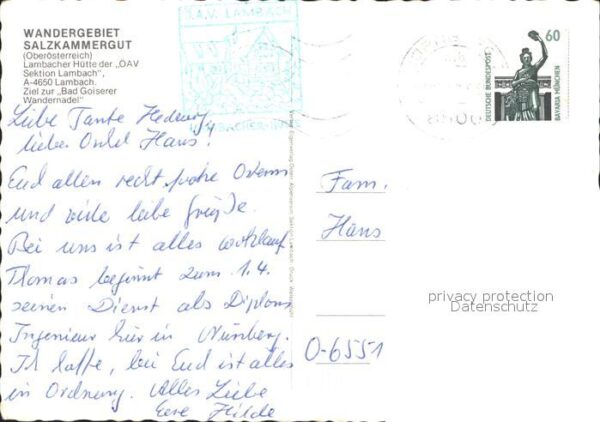 WANDERGEBIET
SALZKAMMERGUT
(Oberösterreich)
Lambacher Hütte der „ÖAV
Sektion Lambach",
A-4650 Lambach.
Ziel zur „Bad Goiserer
Wandernadel"
Ö.A.V. LAMBACH
LAMBACHER-HÜTTE
60
DEUTSCHE BUNDESPOST
BAVARIA MÜNCHEN
Liebe Tante Hedwig,
lieber Onkel Hans!
Euch allen recht frohe Ostern
und viele liebe Grüße.
Bei uns ist alles wohlauf
Thomas beginnt zum 1.4.
seinen Dienst als Diplom
Ingenieur hier in Nürnberg.
Ich hoffe, bei Euch ist alles
in Ordnung. Alles Liebe
Eure Hilde
Fam.
Hans
O-6551
privacy protection
Datenschutz